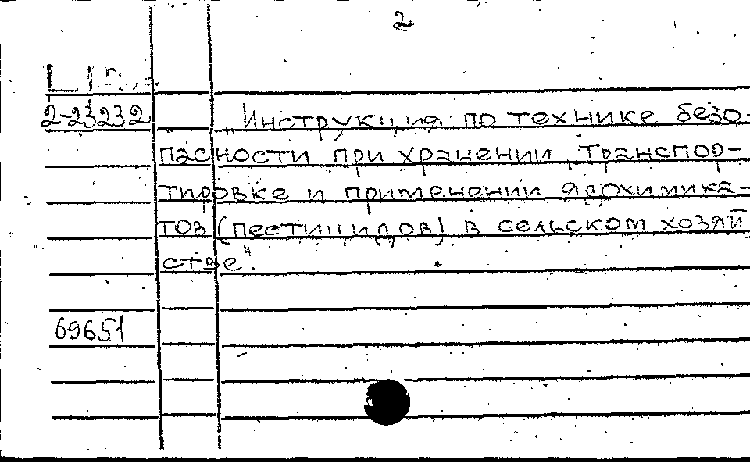 2
2-23232 „Инструкция по технике безо-
пасности при хранении, транспор-
тировке и применении ядохимика-
тов (пестицидов) в сельском хозяй
стве".
69651